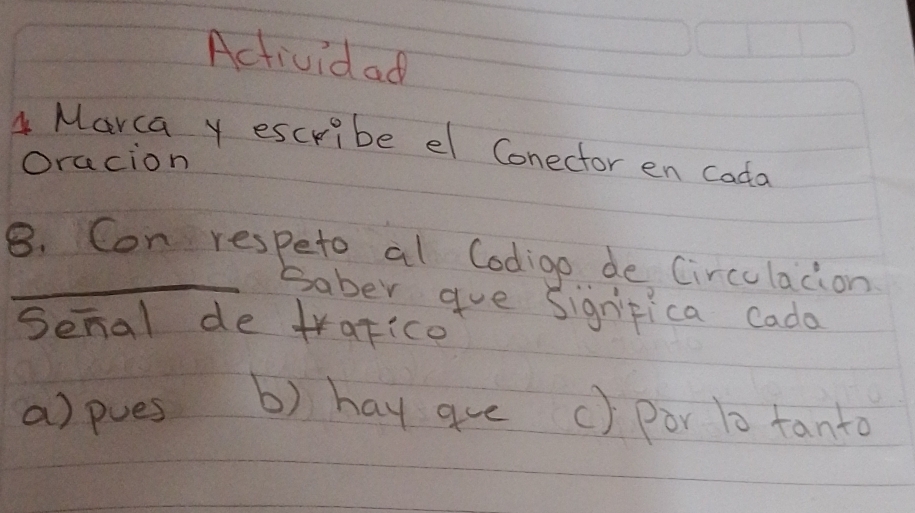 Actividad
1 Marca y escribe el Conector en cada
Oracion
8. Con respeto al Codigo de Circulacion
_______ Saber que Significa cada
Señal de trafico
a) pues b) hay que c) Por lo tanto